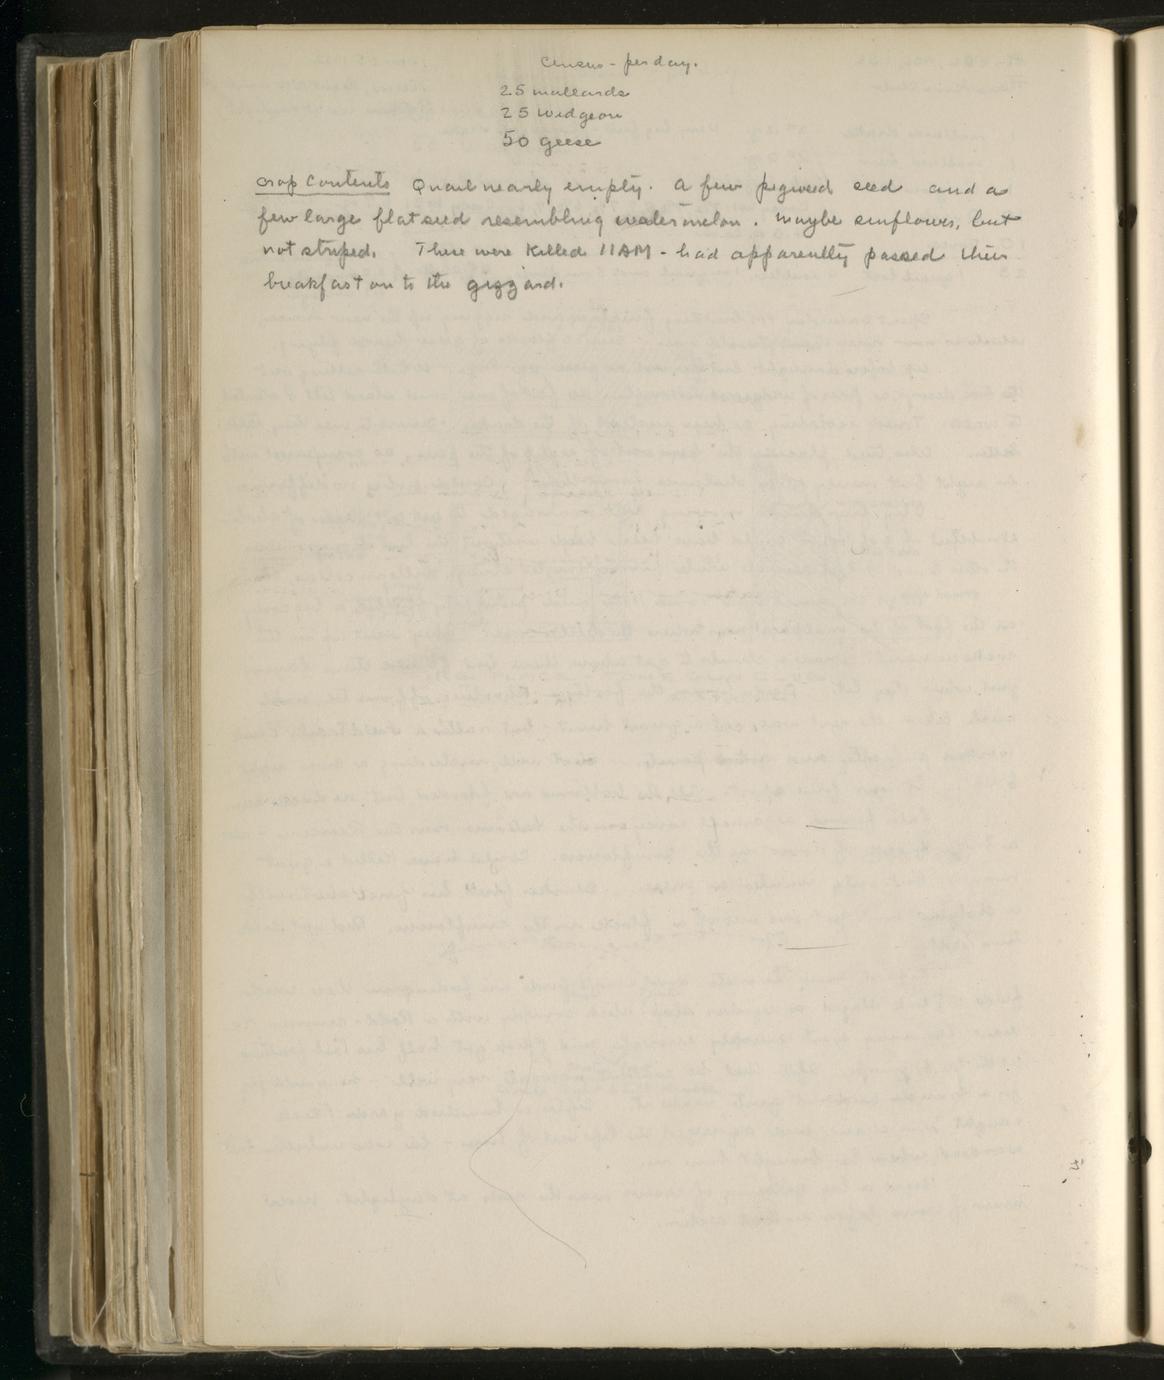 Census - per day.
25 mallards
25 widgeon
50 geese
Crop Contents Quail nearly empty. A few pigweed seed and a
few large flat seed resembling watermelon. Maybe sunflower, but
not striped. These were killed 11AM - had apparently passed their
breakfast on to the gizzard.